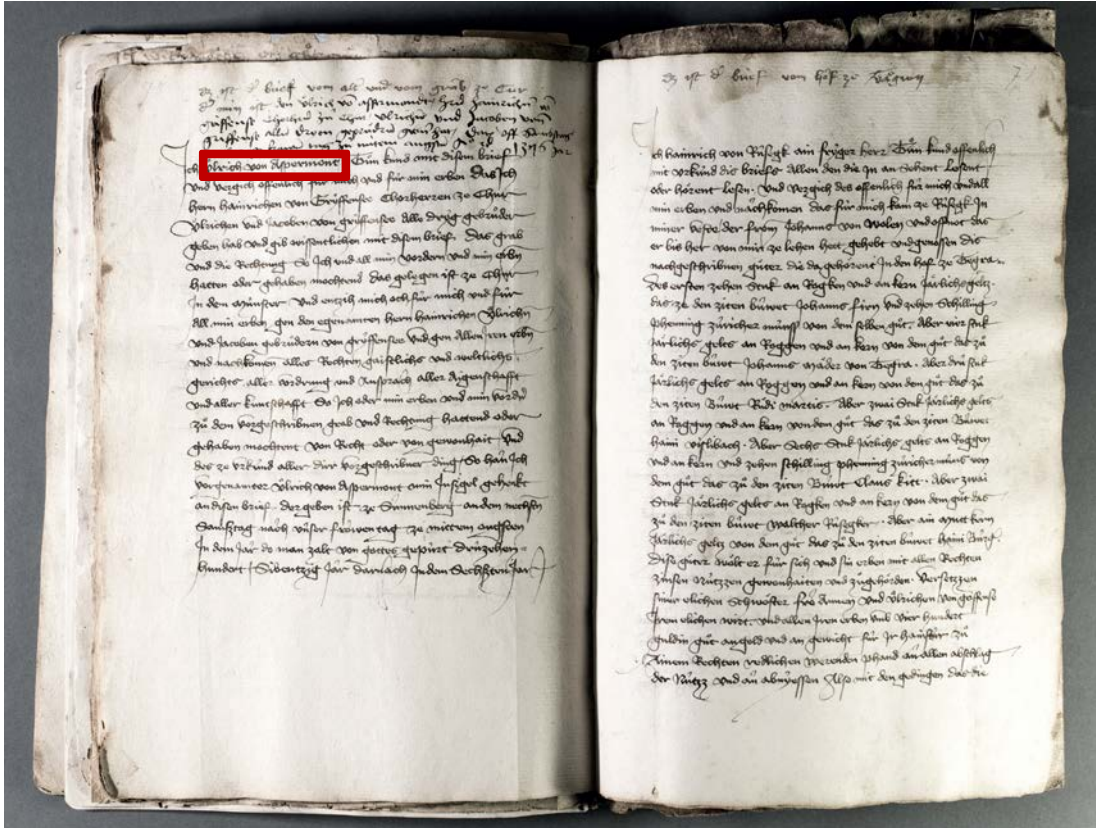 Dz ist d brief von alt und vom grab ze Cur
Ich Ulrich von Aspermont Tuͦn kund mit disem brief
und vergich offenlich für mich und für min erben Das Ich
hern hainrichen von Griffensee Chorherren ze Chur
Ulrichen und Jacoben von griffensee alle dryg gebruͤder
geben hab und gib wissentlichen mit disem brief. Das grab
und die Rechtung So Ich und all min vordern und min erbn
hatten oder gehaben mochtend das gelegen ist ze Chur
In dem münster Und entzih mich och für mich und für
All min erben gen den egenanten hern hainrichen Ulrichn
und Jacoben gebruͤdern von griffensee und gen allen Iren erbn
und nachkomen alles Rechten gaistlichs und weltlichs
gerichts aller vordrung und Ansprach aller Aigenschafft
und aller kuntschafft So Ich oder min erben und min vordrn
zuͦ dem vorgeschribnen grab und Rechtung hattend oder
gehaben mochtent von Recht oder von gewonhait Und
des ze urkünd aller dirr vorgeschribner ding So han Ich
vorgenanter Ulrich von Aspermont min Insigel gehenkt
an disen brief. Der geben ist ze Sunnenberg an dem nechsten
Samstag nach unser frowen tag ze mittem ougsten
In dem Jar do man zalt von gottes gepürt Drüzehen
hundert Sibentzig Jar Darnach In dem Sechsten Jar
Dz ist d brief vom hof ze Tegran
Ich hainrich von Rüsegk ain fryger herr Tuͦn kund offenlich
mit urkünd dis briefs Allen den die In an Sehent Lesent
oder hörent lesen. Und vergich des offenlich für mich und all
min erben und nachkomen das für mich kam ze Rüsegk In
miner veste der from Johanns von Wolen und offnot das
er bis her von mir ze lehen hett gehebt und genossen dis
nachgeschribnen guͤter die da gehörent In den hof ze Tegra.
Des ersten zehen Stuk an Rogken und an kern Jarlichs geltz.
das ze den ziten buwet Johanns firn und zehen Schilling
phenning züricher müntz von dem selben guͦt. Aber vier stuk
Jarlichs geltz an Roggen und an kern von dem guͦt das zuͦ
den ziten buwt Johanns mader von Tegra. Aber drü stuk
Jarlichs geltz an Roggen und an kern von dem guͦt das zuͦ
den ziten Buwt Ruͦdi martis. Aber zwai Stuk Jarlichs geltz
an Roggen und an kern von dem guͦt das zuͦ den ziten Buwet
haini vislibach. Aber Sechs Stuk Jarlichs geltz an Roggen
und an kern und zehen schilling phenning züricher müntz von
dem guͦt das zuͦ den ziten Buwt Claus kitt. Aber zwai
Stuk Jarlichs geltz an Rogken und an kern von dem guͦt das
zuͦ den ziten buwet Walther Rüsegker. Aber ain mutt kern
Jarlichs geltz von dem guͦt das zuͦ den ziten buwet haini Burg.
Dise guͤter wolt er für sich und sin erben mit allen Rechten
zinsen Nützzen gewonhaiten und zuͦgehörden. Versetzzen
siner elichen Schwöster fro Annen und Ulrichen von
Iren elichen wirt. und allen Iren erben umb vier hundert
guldin guͦt an gold und an gewicht für Ir haimstür zuͦ
Ainem Rechten redlichen werenden phand an allen abschlag
der Nützz und an abnyessen Also mit den gedingen das die